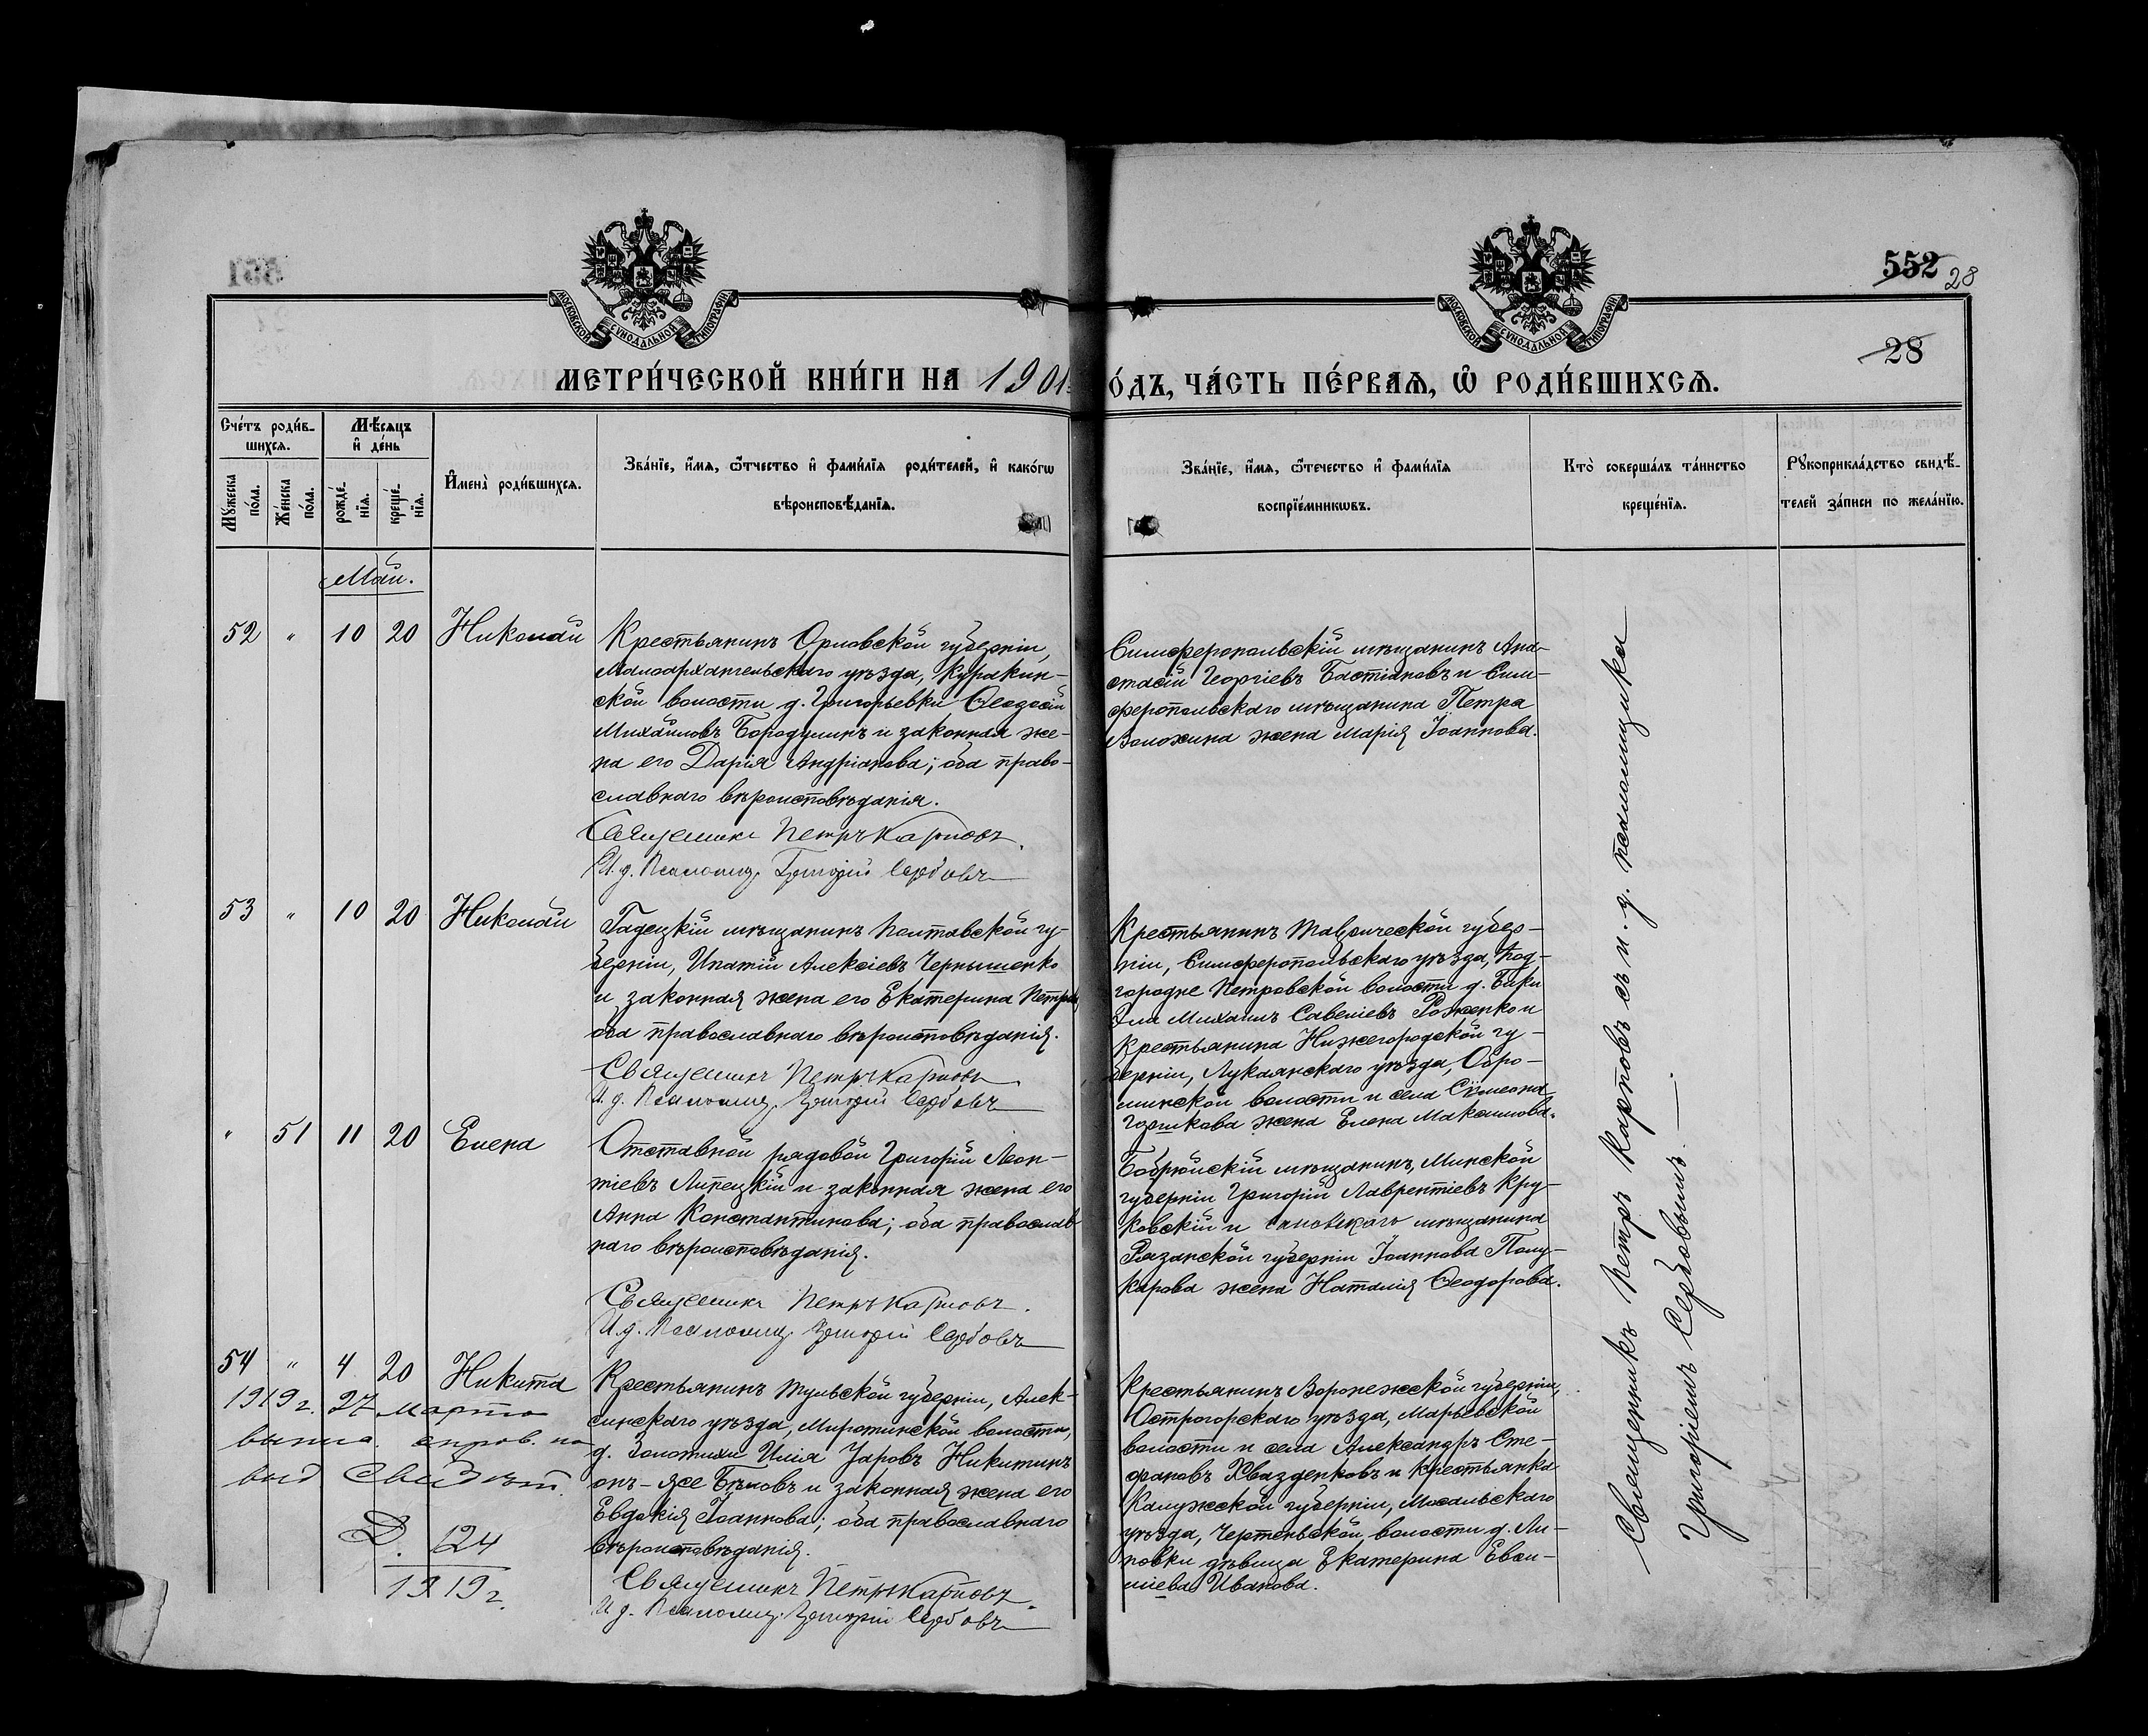 552 28
28
МОСКОВСКОЙ СѴНОДАЛЬНОЙ ТИПОГРАФІИ
МОСКОВСКОЙ СѴНОДАЛЬНОЙ ТИПОГРАФІИ
МЕТРИ́ЧЕСКОЙ КНИ́ГИ НА 1901 О́ДЪ, ЧА́СТЬ ПЕ́РВАѦ, Ѽ РОДИ́ВШИХСѦ.
Сче́тъ роди́в-
шихсѧ.
Мꙋ́жеска по́ла.
Же́нска по́ла.
Мѣ́сѧцъ
и҆ де́нь
рожде́-
нїѧ.
креще́-
нїѧ.
И҆мена̀ роди́вшихсѧ.
Зва́нїе, и҆́мѧ, ѻ҆́тчество и҆ фами́лїѧ роди́телей, и҆ како́гѡ
вѣроисповѣ́данїѧ.
Зва́нїе, и҆́мѧ, ѻ҆те́чество и҆ фами́лїѧ
воспрїе́мникѡвъ.
Кто̀ соверша́лъ та́инство
креще́нїѧ.
Рꙋкоприкла́дство свидѣ́-
телей за́писи по жела́нїю.
Май.
52 " 10 20 Николай
Крестьянинъ Орловской губерніи,
Малоархангельскаго уѣзда, Куракин-
ской волости д. Григорьевки Ѳеодосій
Михайловъ Бородулинъ и законная же-
на его Дарія Андріанова; оба право-
славнаго вѣроисповѣданія.
Священникъ Петръ Карповъ.
И. д. Псаломщ. Григорій Сербовъ
Симферопольскій мѣщанинъ Ана-
стасій Георгіевъ Бастіановъ и Сим-
феропольскаго мѣщанина Петра
Волохина жена Марія Іоаннова.
53 " 10 20 Николай
Гадецкій мѣщанинъ Полтавской гу-
берніи, Ипатій Алексіевъ Чернышенко
и законная жена его Екатерина Петрова
оба православнаго вѣроисповѣданія.
Священникъ Петръ Карповъ
И. д. Псаломщ. Григорій Сербовъ
Крестьянинъ Таврической губер-
ніи, Симферопольскаго уѣзда, Под-
городне Петровской волости д. Баки
Эли Михаилъ Савеліевъ Роженко и
крестьянина Нижегородской гу-
берніи, Лукоянскаго уѣзда, Обро-
чинской волости и села Сѵмеона
Горшкова жена Елена Максимова.
" 51 11 20 Елена
Отставной рядовой Григорій Леон-
тіевъ Липецкій и законная жена его
Анна Константинова; оба православ-
наго вѣроисповѣданія.
Священникъ Петръ Карповъ.
И. д. Псаломщ. Григорій Сербовъ
Бобруйскій мѣщанинъ, Минской
губерніи Григорій Лаврентіевъ Кру-
ковскій и мѣщанина
Рязанской губерніи Іоаннова Полу-
карова жена Наталія Ѳеодорова.
54 " 4 20 Никита
1919 г. 27 марта
выпис. справ. на
выд свидѣт.
Д. 124
1919 г.
Крестьянинъ Тульской губерніи, Алек-
синскаго уѣзда, Миротинской волости,
д. Золотихи Илія Уаровъ Никитинъ
онъ-же Бѣловъ и законная жена его
Евдокія Іоаннова; оба православнаго
вѣроисповѣданія.
Священникъ Петръ Карповъ.
И. д. Псаломщ. Григорій Сербовъ
Крестьянинъ Воронежской губерніи,
Острогорскаго уѣзда, Марьевской
волости и села Александръ Сте-
фановъ Хвазденковъ и крестьянка
Калужской губерніи, Мосальскаго
уѣзда, Чертенской, волости д. Ли-
повки дѣвица Екатерина Евси-
гніева Иванова.
Священникъ Петръ Карповъ съ и. д. псаломщика
Григоріемъ Сербовымъ.